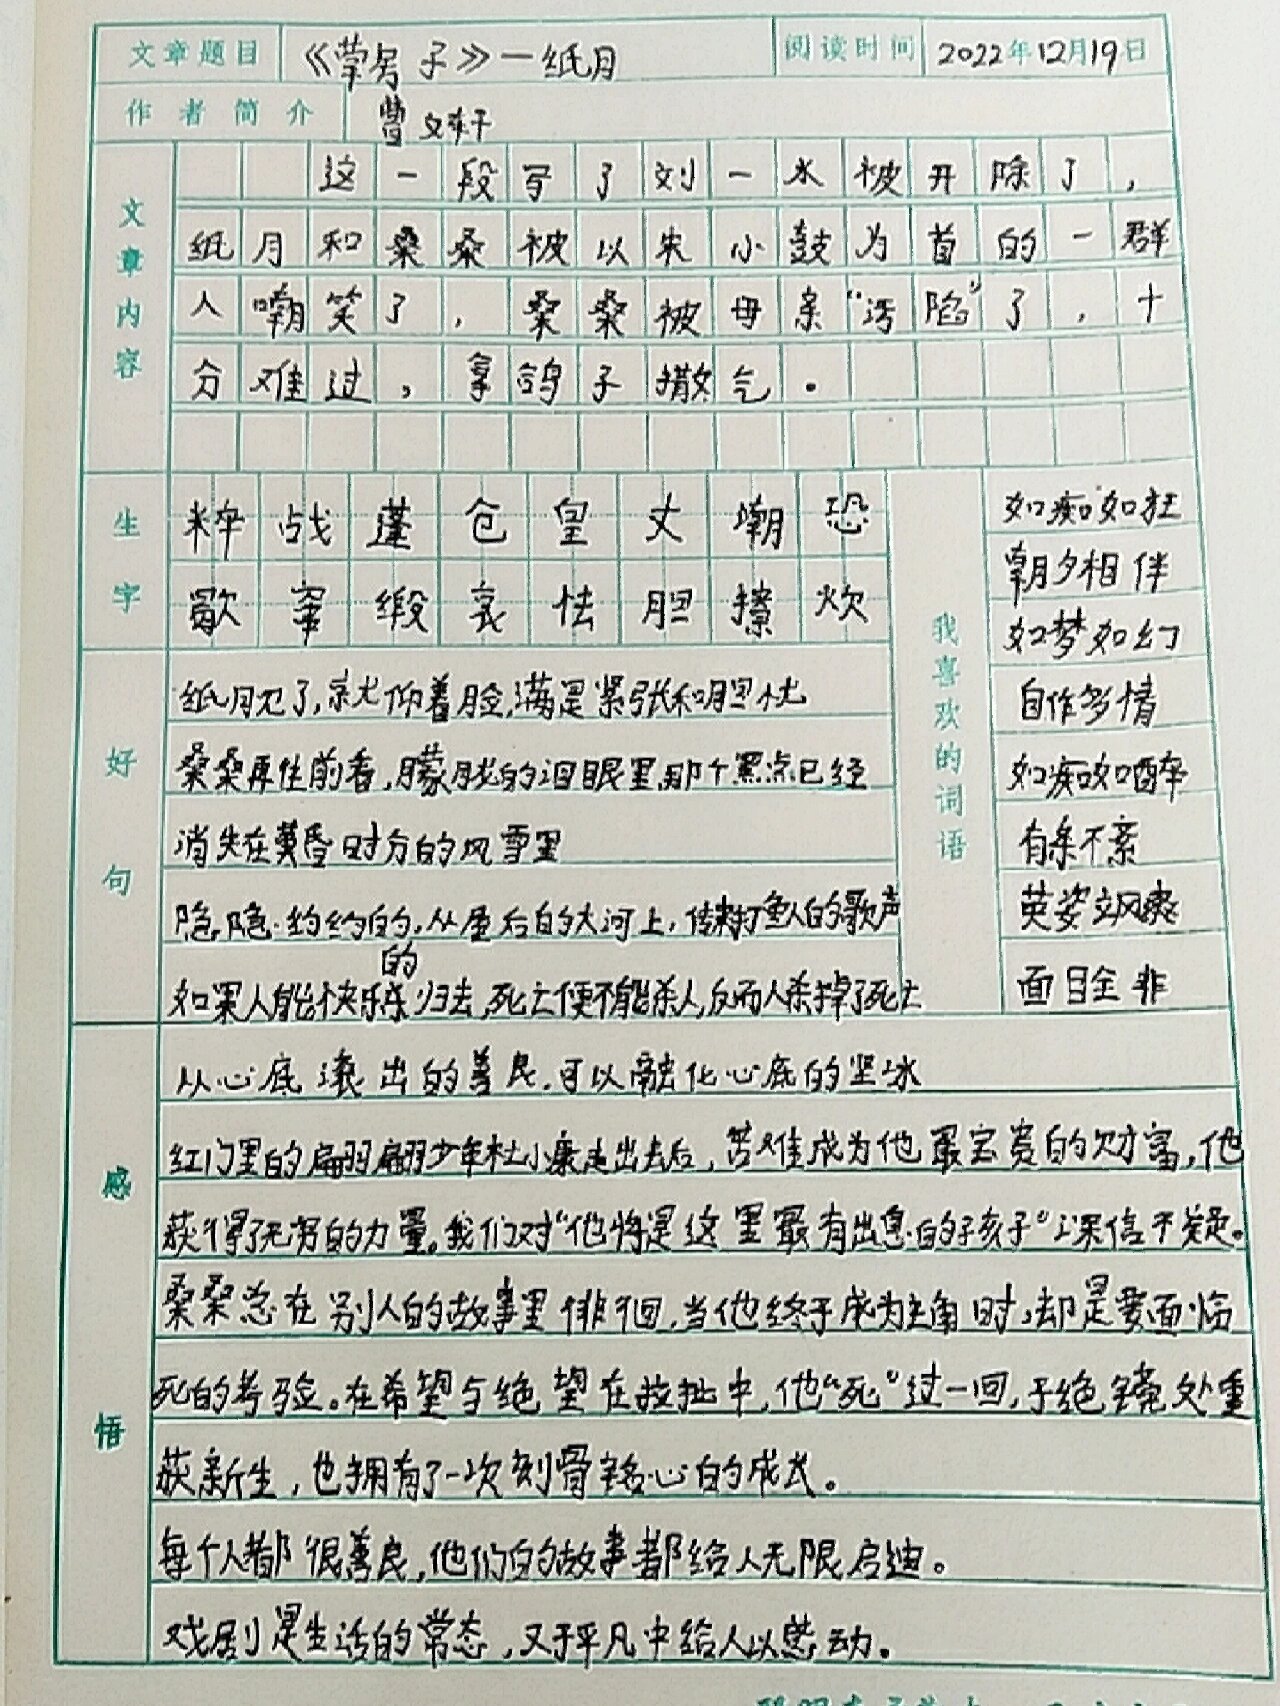 文章题目 《草房子》一纸月 阅读时间 2022年12月19日
作者简介 曹文轩
文章内容
这一段写了刘一水被开除了，
纸月和桑桑被以朱小鼓为首的一群
人嘲笑了，桑桑被母亲“污陷”了，十
分难过，拿鸽子撒气。
生字
粹战蓬仓皇丈嘲恐
歇宰缎哀怯胆擦炊
我喜欢的词语
如痴如狂
朝夕相伴
如梦如幻
自作多情
如痴如醉
有条不紊
英姿飒爽
面目全非
好句
纸月见了,就仰着脸,满是紧张和胆怯
桑桑再往前看,朦胧的泪眼里,那个黑点已经
消失在黄昏时分的风雪里
隐隐约约的,从屋后的大河上,传来打鱼人的歌声
如果人能快乐的归去,死亡便不能杀人,反而人杀掉了死亡
感悟
从心底滚出的善良,可以融化心底的坚冰
红门里的翩翩少年杜小康走出去后,苦难成为他最宝贵的财富,他
获得了无穷的力量。我们对“他将是这里最有出息的孩子”深信不疑。
桑桑总在别人的故事里徘徊,当他终于成为主角时,却是要面临
死的考验。在希望与绝望在拉扯中,他“死”过一回,于绝境处重
获新生,也拥有了一次刻骨铭心的成长。
每个人都很善良,他们的故事都给人无限启迪。
戏剧是生活的常态,又于平凡中给人以感动。